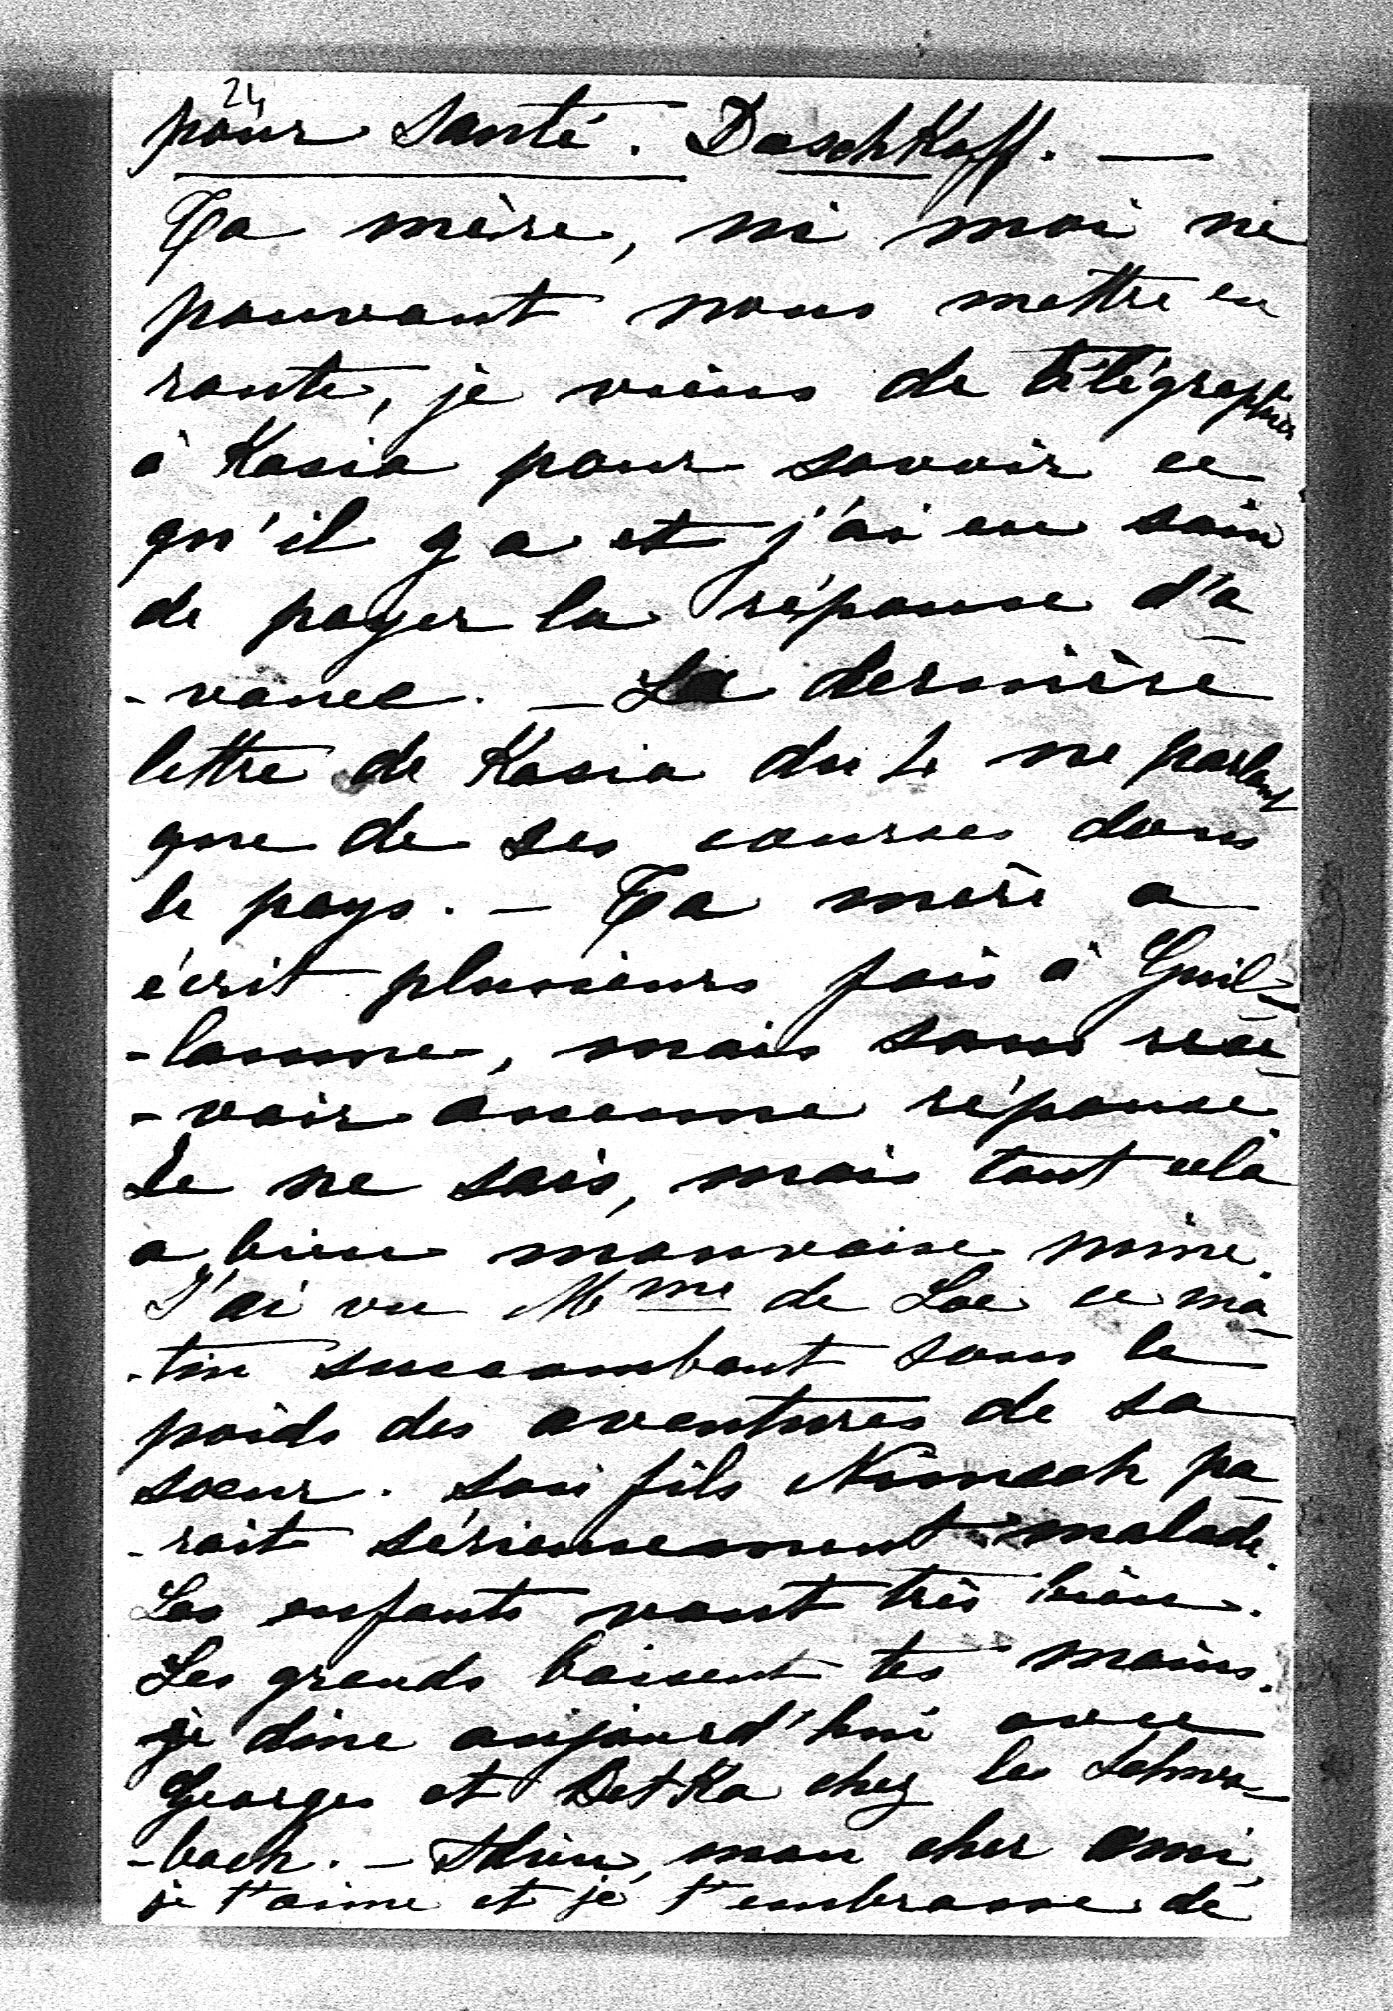 24
pour santé. Daschkoff. —
Ta mère, ni moi ne
pouvant nous mettre en
route, je viens de télégraphier
à Kasia pour savoir ce
qu'il y a et j'ai eu soin
de payer la réponse d'a-
-vance. — La dernière
lettre de Kasia du 4 ne parlant
que de ses courses dans
le pays. — Ta mère a
écrit plusieurs fois à Guil-
-laume, mais sans rece-
-voir aucune réponse.
Je ne sais, mais tout cela
a bien mauvaise mine.
J'ai vu Mme de Loe ce ma-
-tin succombant sous le
poids des aventures de sa
sœur. Son fils Nimsch pa-
-rait sérieusement malade.
Les enfants vont très bien.
Les grands baisent tes mains.
je dine aujourd'hui avec
Georges et Betka chez les Schwa-
-bach. — Adieu, mon cher ami,
je t'aime et je t'embrasse de